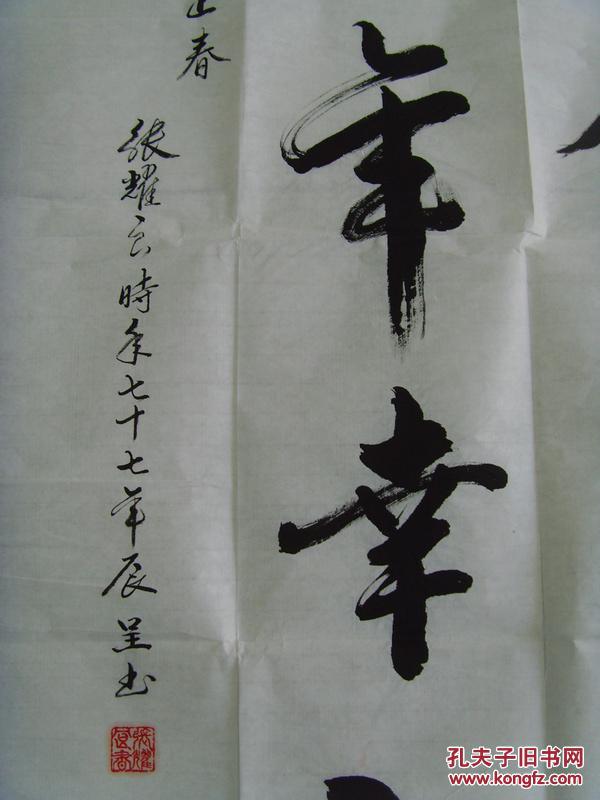 年幸
春
張耀時年七十七年辰呈书
孔夫子旧书网
www.kongfz.com